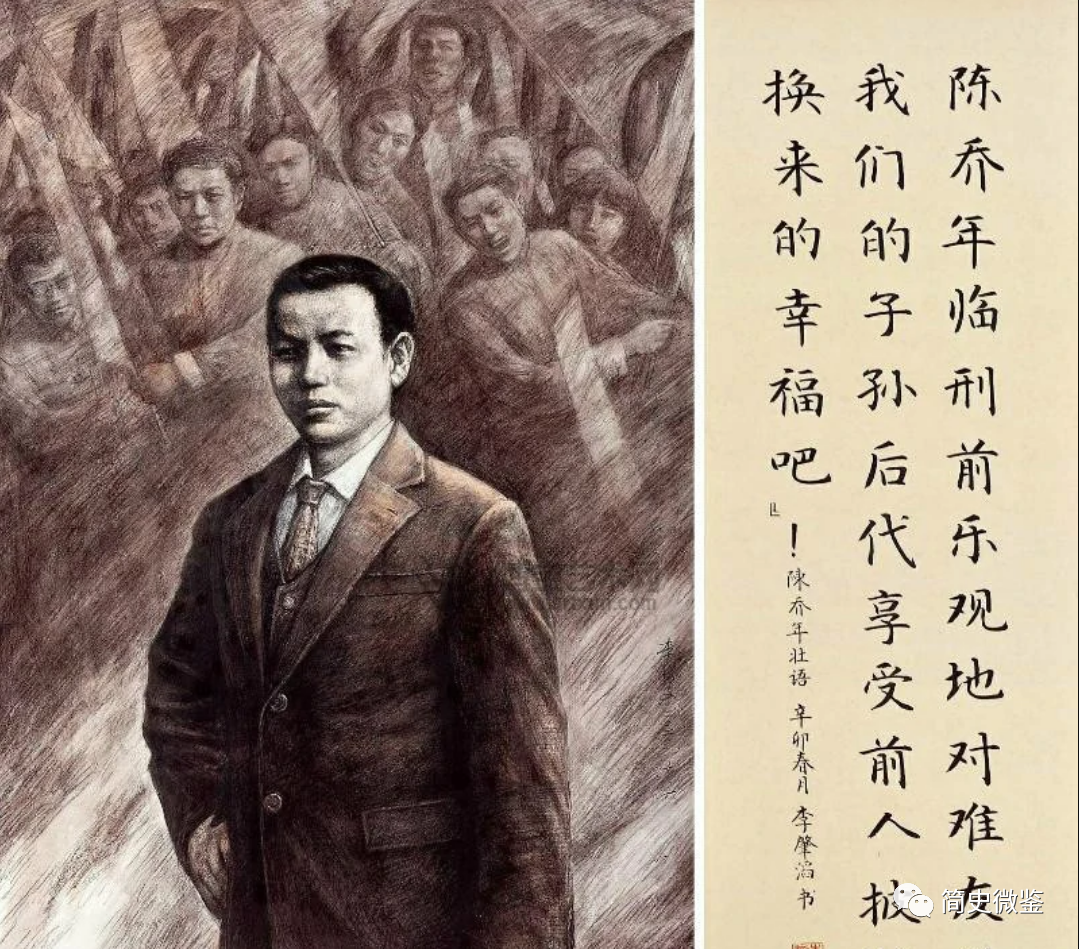 陈乔年临刑前乐观地对难友
我们的子孙后代享受前人披
换来的幸福吧』！
陳乔年壮语 辛卯春月 李肇滔书
简史微鉴